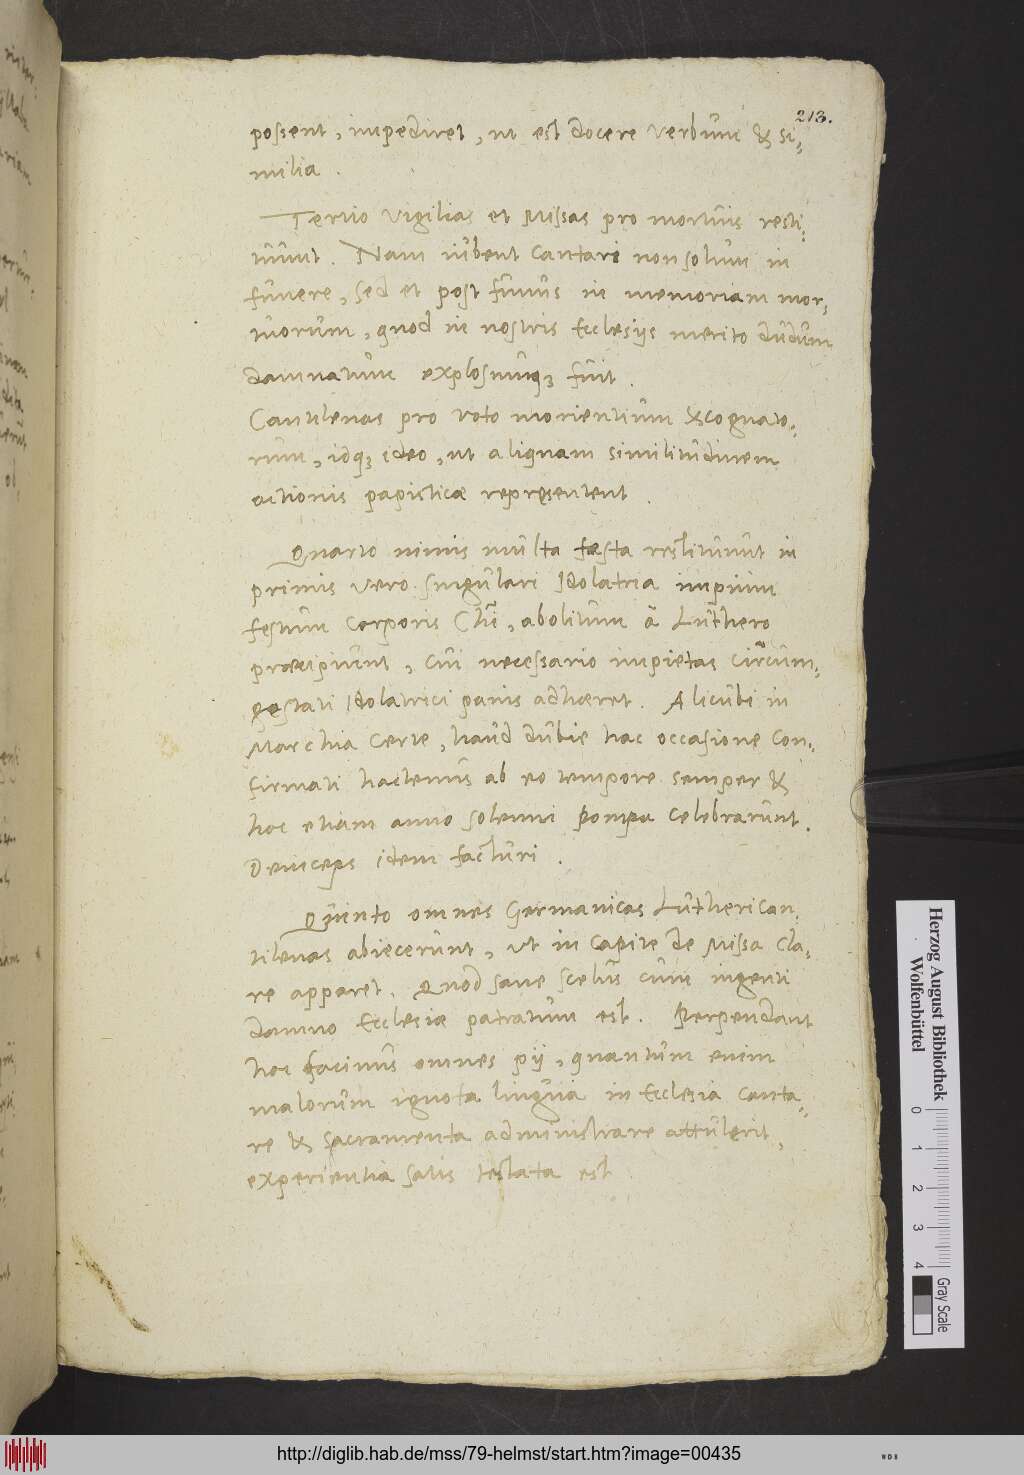 213.
possent, impediret, ut est docere verbum & si-
milia.
Tertio Vigilias et Missas pro mortuis resti-
tuunt. Nam iubent cantari non solum in
funere, sed et post funus in memoriam mor-
tuorum, quod in nostris Ecclesijs merito dudum
damnatum explosumq3 fuit.
Cantilenas pro voto morientium & cognato-
rum, idq3 ideo, ut aliquam similitudinem
actionis papisticae repręsentent.
Quarto nimis multa fæsta restituunt in
primis vero singulari Idolatria impium
festum Corporis Chi, abolitum à Luthero
præcipiunt, cui necessario impietas circum-
gestati Idolatrici panis adhæret. Alicubi in
Marchia certe, haud dubie hac occasione con-
firmati hactenus ab eo tempore semper &
hoc etiam anno solenni Pompa celebrarunt.
Deinceps idem facturi.
Quinto omnes Germanicas Lutheri can-
tilenas abiecerunt, ut in capite de Missa cla-
re apparet. Quod sane scelus cum ingenti
damno Ecclesiæ patratum est. Perpendant
hoc facinus omnes pij, quantum enim
malorum ignota lingua in Ecclesia canta-
re & sacramenta administrare attulerit,
experientia satis testata est
Herzog August Bibliothek
Wolfenbüttel
0 1 2 3 4
Gray Scale
http://diglib.hab.de/mss/79-helmst/start.htm?image=00435
WDB